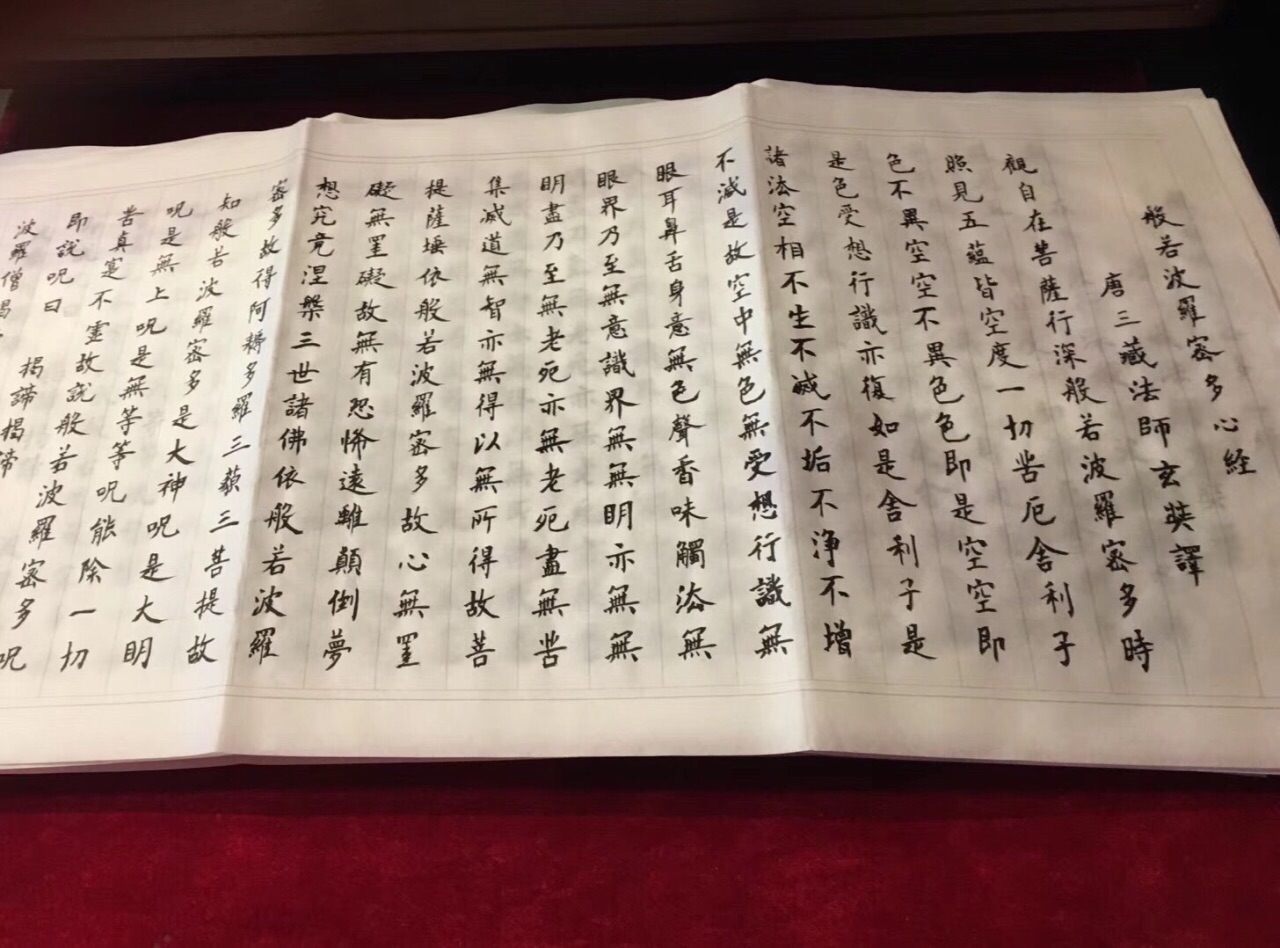 般若波羅密多心経
唐三藏法師玄奘譯
觀自在菩薩行深般若波羅密多時
照見五蘊皆空度一切苦厄舍利子
色不異空空不異色色即是空空即
是色受想行識亦復如是舍利子是
諸法空相不生不滅不垢不浄不增
不滅是故空中無色無受想行識無
眼耳鼻舌身意無色聲香味觸法無
眼界乃至無意識界無無明亦無無
明盡乃至無老死亦無老死盡無苦
集滅道無智亦無得以無所得故菩
提薩埵依般若波羅密多故心無罣
礙無罣礙故無有恐怖遠離顛倒夢
想究竟涅槃三世諸佛依般若波羅
密多故得阿耨多羅三藐三菩提故
知般若波羅密多是大神呪是大明
呪是無上呪是無等等呪能除一切
苦真寔不虛故説般若波羅密多呪
即説呪曰 揭諦揭諦
波羅僧揭